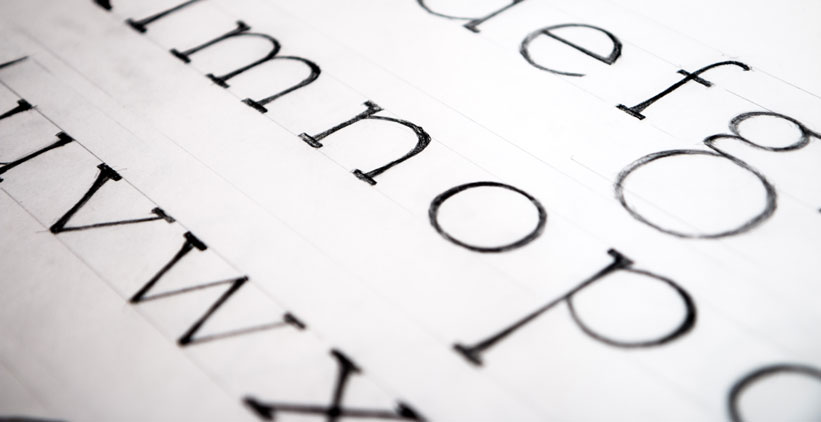 d e f g
l m n o p
u v w x